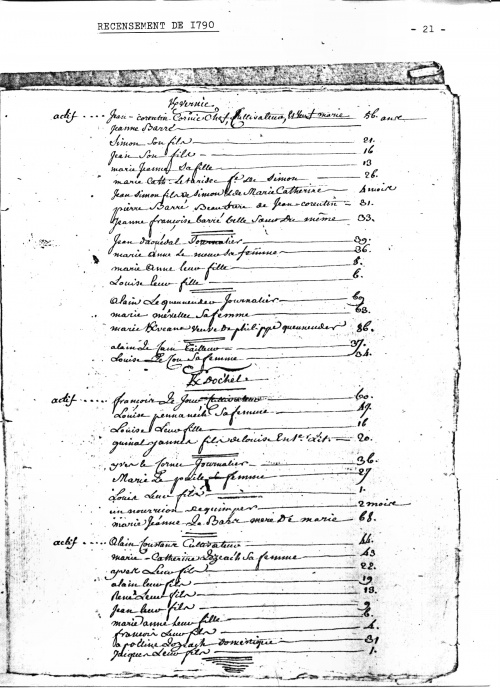 RECENSEMENT DE 1790
- 21 -
Kvernic
actif .... Jean-corentin Cornic Chef, Cultivateur, marié 56. ans
Jeanne Barré
Simon Son fils 21.
Jean Son fils 16
marie Jeanne Sa fille 13
marie Cath. fe de Simon 26.
Jean Simon fils de Simon & de Marie Catherine 4 mois
pierre Barré Beau frere de Jean-corentin 31.
Jeanne françoise barré belle Sœur du même 33.
Jean Journalier 39.
marie anne Le sa femme 36.
marie anne leur fille 8.
Louise leur fille 6.
alain Lequeuneudeu Journalier 69
marie mérellec Sa femme 63.
marie veuve de philippe queuneudeu 86.
alain Le Tailleur 37.
Louise Le Sa femme 34.
K Dochel
actif .... françois Le Jour Cultivateur 60.
Louise pennanech Sa femme 47.
Louise Leur fille 16
yannes fils de Louise En 1er Lit. 20.
yves le Journalier 36.
Marie Le femme 27
Louis Leur fils 1.
un nourrison de quimper 2 mois
marie Jeanne Le Barr mere De marie 68.
actif .... Alain Cultivateur 44.
marie-Catherine Sa femme 43
yves Leur fils 22.
alain leur fils 19
René Leur fils 13.
Jean leur fils 9
marie anne leur fille 6.
françois Leur fils 4.
domestique 31
Jacques Leur fils 1.